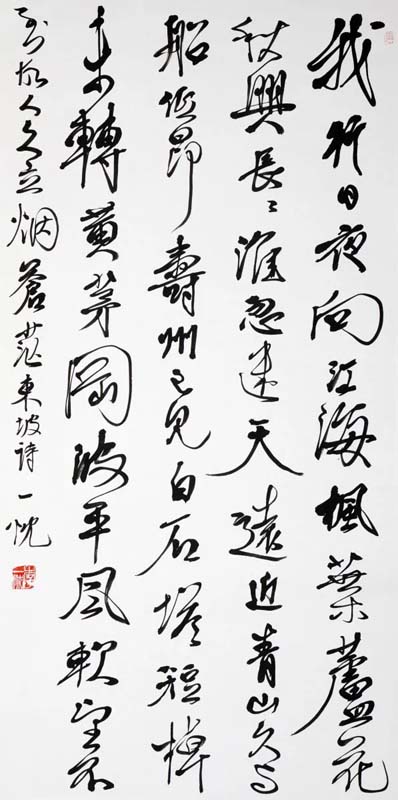 我行日夜向江海楓葉蘆花
秋興長〻淮忽迷天遠近青山久与
船低昂壽州已見白石塔短棹
未轉黃茅岡波平風軟望不
到故人久立烟蒼茫東坡詩一忱